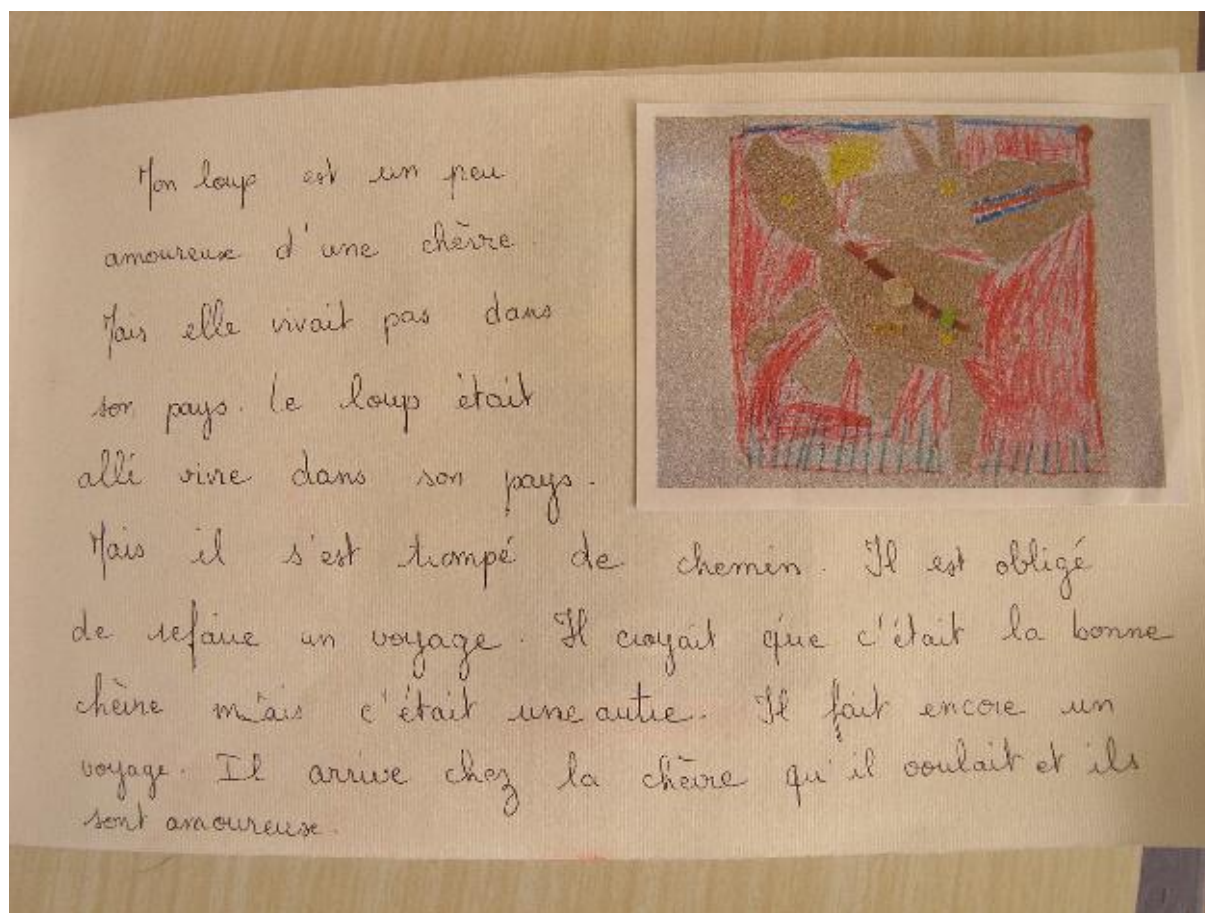 Mon loup est un peu
amoureux d'une chèvre.
Mais elle vivait pas dans
son pays. Le loup était
allé vivre dans son pays.
Mais il s'est trompé de chemin. Il est obligé
de refaire un voyage. Il croyait que c'était la bonne
chèvre mais c'était une autre. Il fait encore un
voyage. Il arrive chez la chèvre qu'il voulait et ils
sont amoureux.